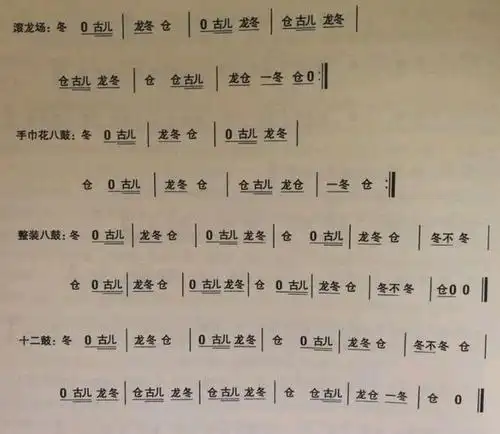 滚龙场：冬 0 古儿 | 龙冬 仓 | 0 古儿 龙冬 | 仓 古儿 龙冬 |
仓 古儿 龙冬 | 仓 仓 古儿 | 龙仓 一冬 仓 0 :||
手巾花八鼓：冬 0 古儿 | 龙冬 仓 | 0 古儿 龙冬 |
仓 0 古儿 | 龙冬 仓 | 仓 古儿 龙仓 | 一冬 仓 :||
整装八鼓：冬 0 古儿 | 龙冬 仓 | 0 古儿 龙冬 | 仓 0 古儿 | 龙冬 仓 | 冬不 冬 |
仓 0 古儿 | 龙冬 仓 | 0 古儿 龙冬 | 仓 0 古儿 | 龙冬 仓 | 冬不 冬 | 仓 0 0 ||
十二鼓：冬 0 古儿 | 龙冬 仓 | 0 古儿 龙冬 | 仓 0 古儿 | 龙冬 仓 | 冬不 冬 仓 |
0 古儿 龙冬 | 仓 古儿 龙冬 | 仓 古儿 龙冬 | 仓 仓 古儿 | 龙仓 一冬 | 仓 0 ||